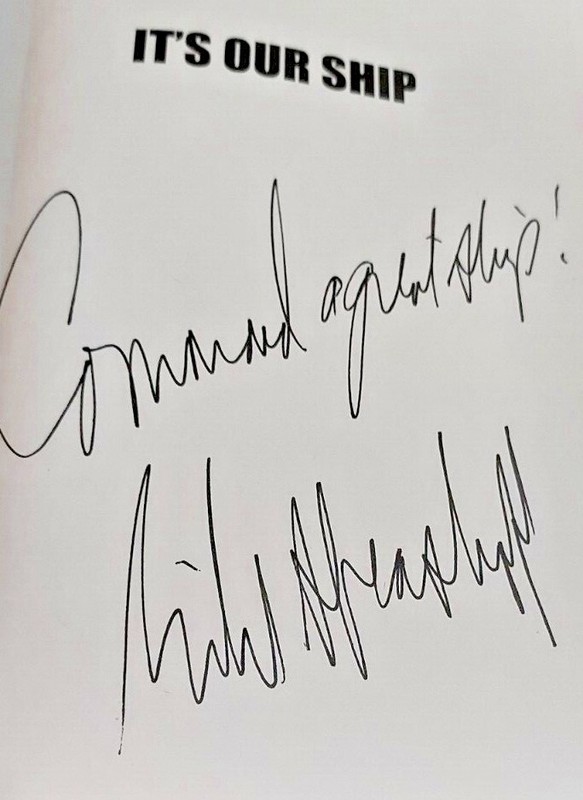 IT'S OUR SHIP
Command a great ship!
Mike Abrashoff